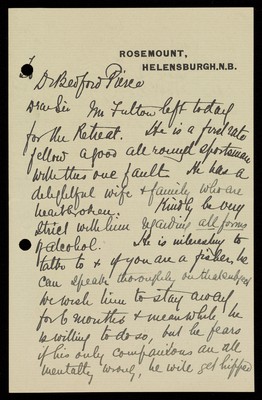 ROSEMOUNT,
HELENSBURGH, N.B.
Dr Bedford Pierce
Dear Sir Mr Fulton left today
for the Retreat. He is a first rate
fellow a good all round sportsman
with this one fault. He has a
delightful wife & family who are
heartbroken. Kindly be very
strict with him regarding all forms
of alcohol. He is interesting to
talk to & if you are a fisher he
can speak thoroughly on that subject
We wish him to stay away
for 6 months & meanwhile he
is willing to do so, but he fears
if his only companions are all
mentally wrong, he will get hipped